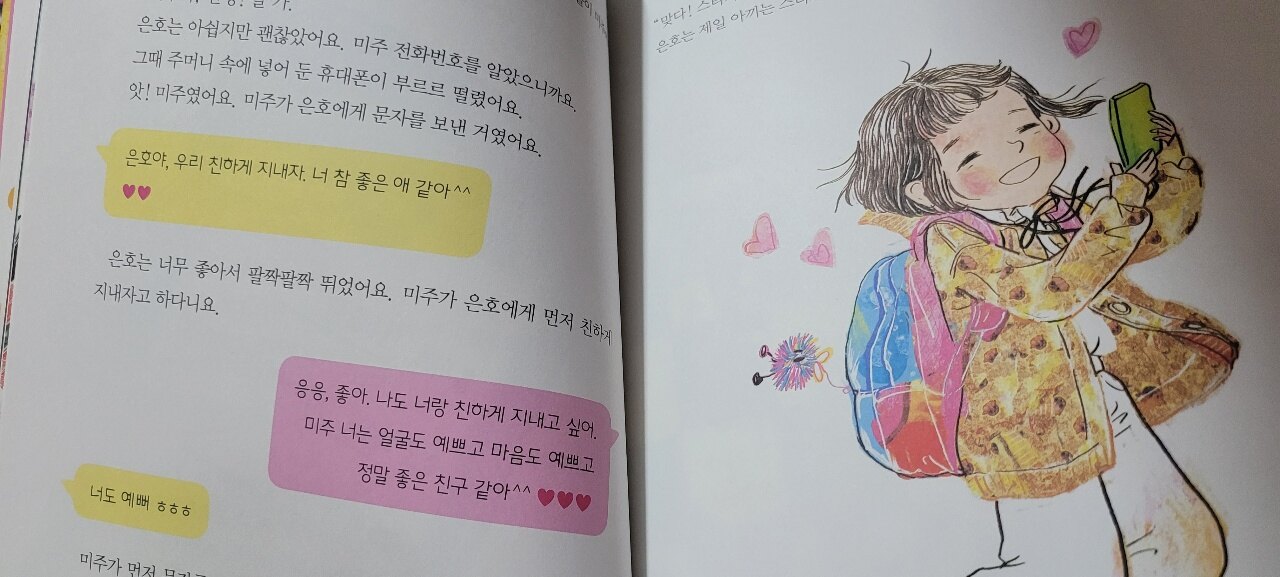 은호는 아쉽지만 괜찮았어요. 미주 전화번호를 알았으니까요.
그때 주머니 속에 넣어 둔 휴대폰이 부르르 떨렸어요.
앗! 미주였어요. 미주가 은호에게 문자를 보낸 거였어요.
은호야, 우리 친하게 지내자. 너 참 좋은 애 같아^^
♥♥
은호는 너무 좋아서 팔짝팔짝 뛰었어요. 미주가 은호에게 먼저 친하게
지내자고 하다니요.
응응, 좋아. 나도 너랑 친하게 지내고 싶어.
미주 너는 얼굴도 예쁘고 마음도 예쁘고
정말 좋은 친구 같아^^ ♥♥♥
너도 예뻐 ㅎㅎㅎ
미주가 먼저
"맞다!
은호는 제일 아끼는